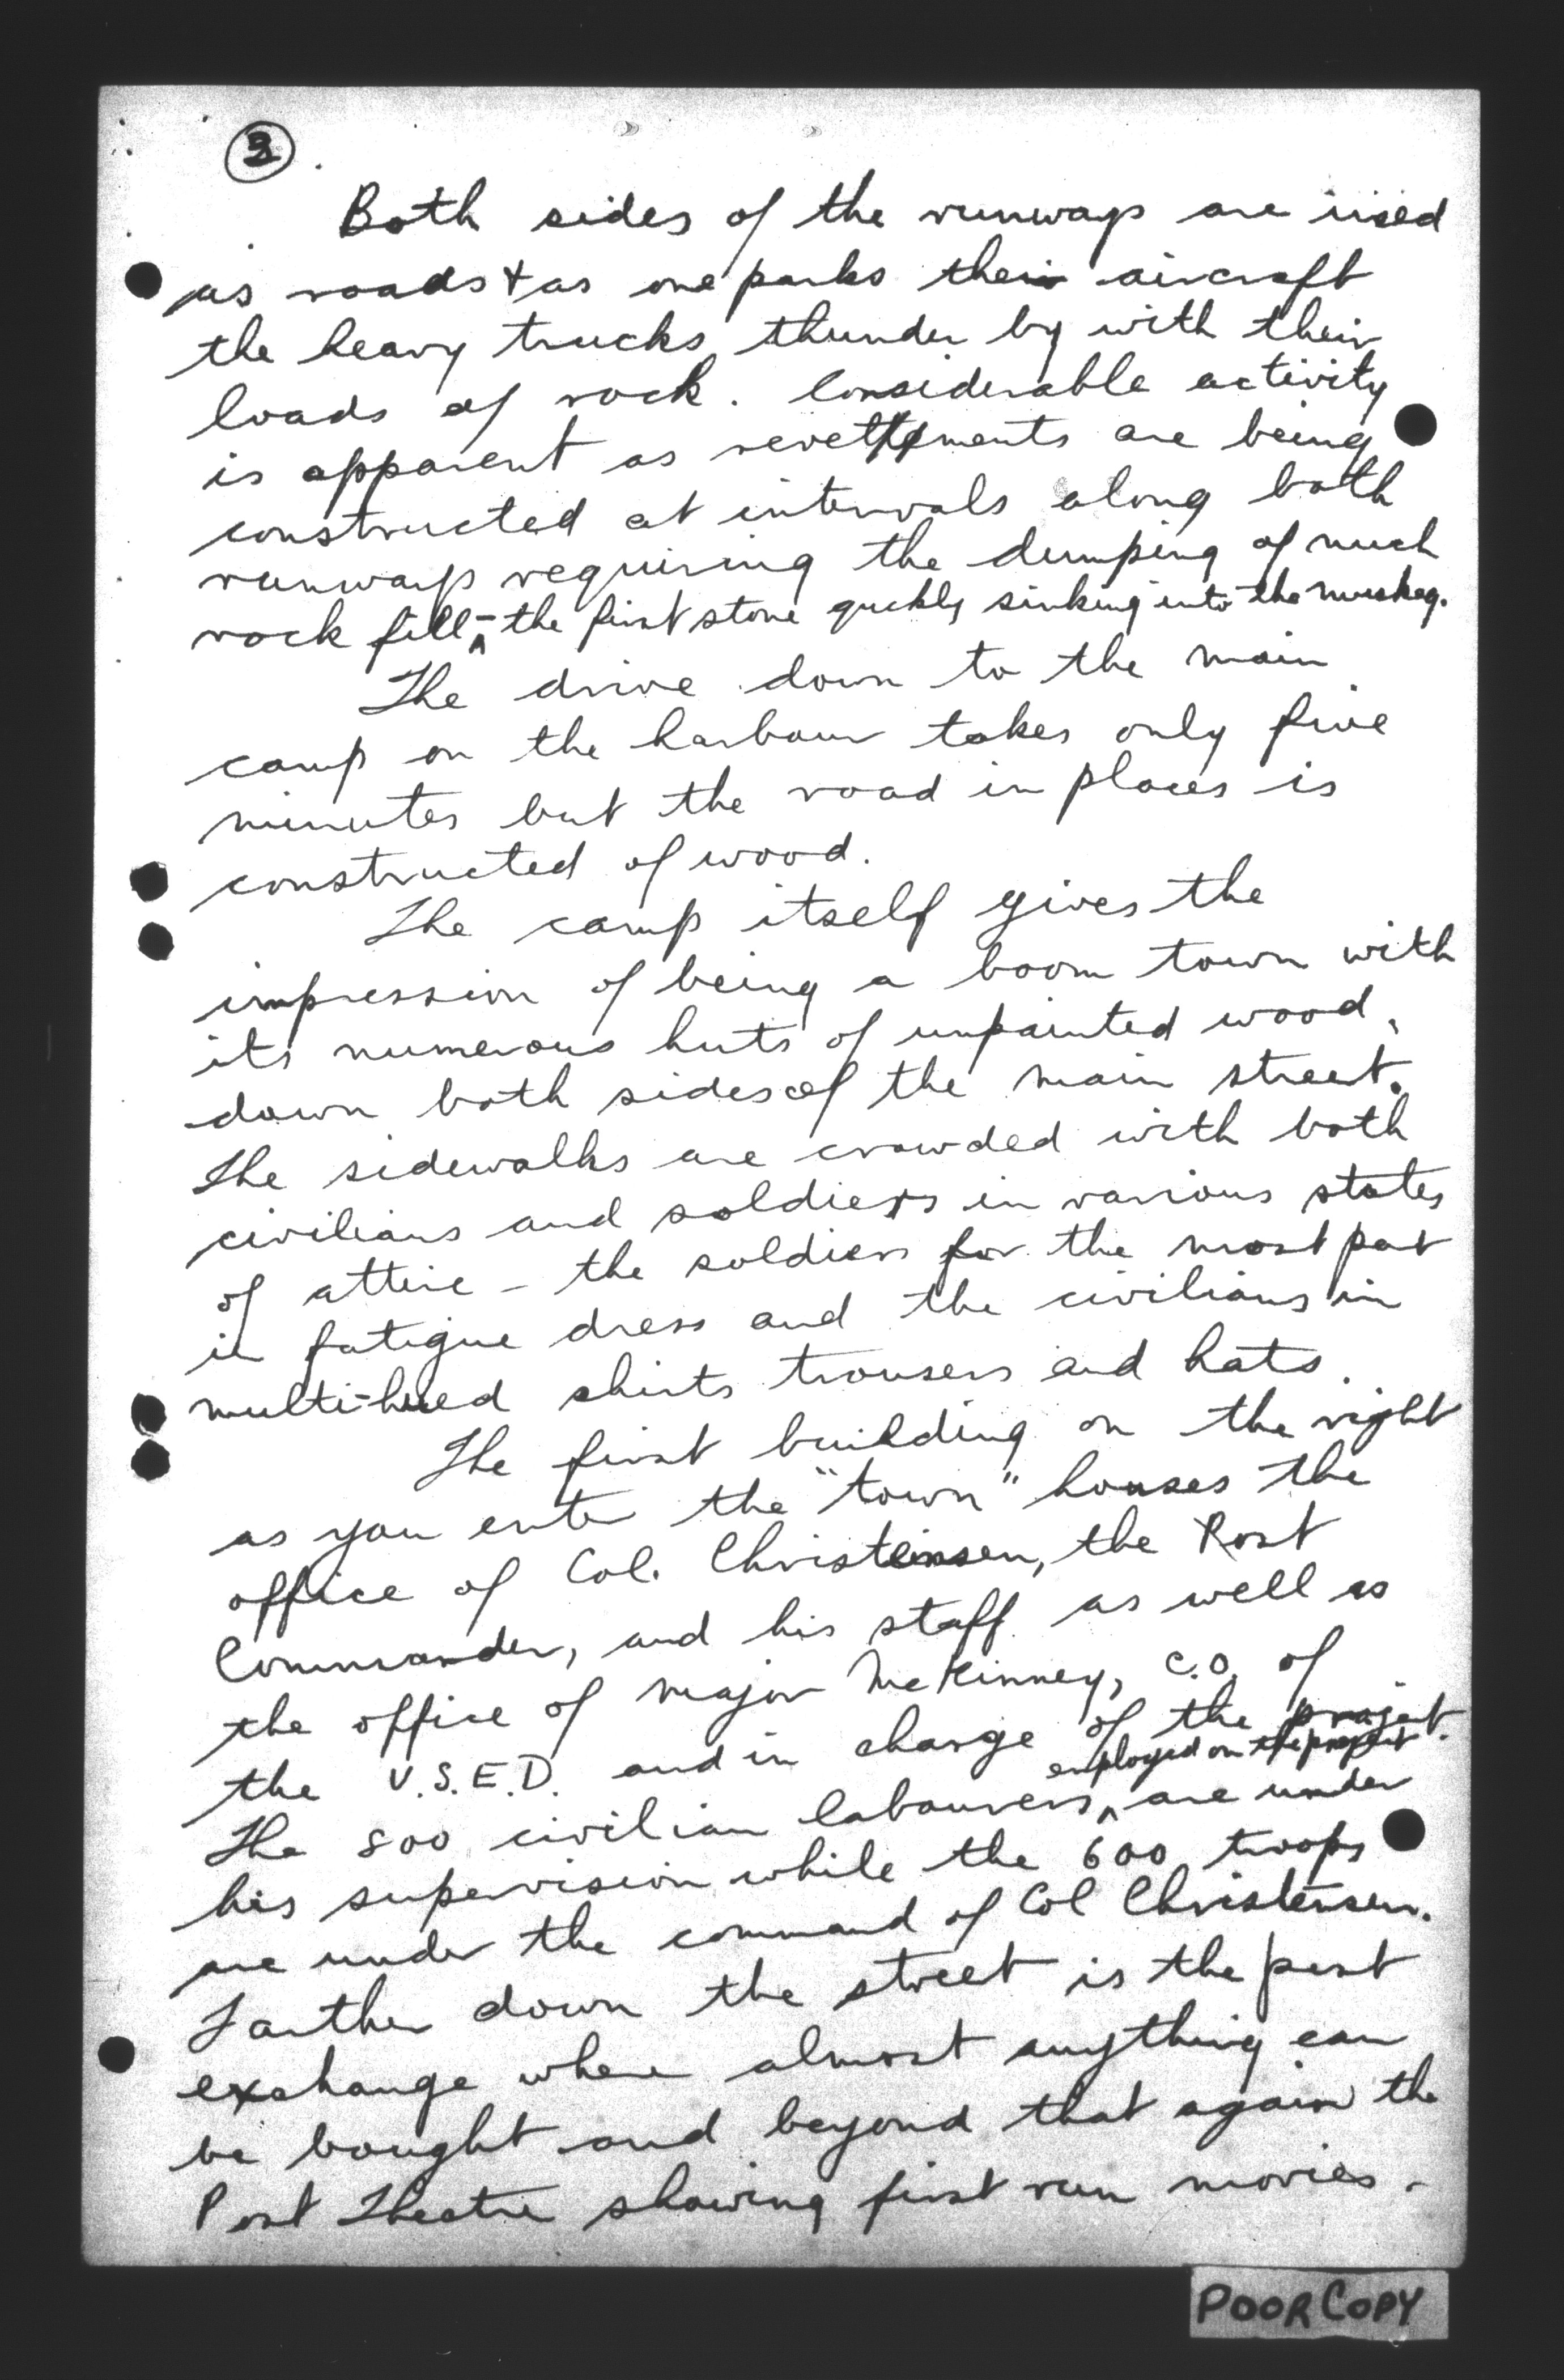 3
Both sides of the runways are used
as roads & as one parks their aircraft
the heavy trucks thunder by with their
loads of rock. Considerable activity
is apparent as revettments are being
constructed at intervals along both
runways requiring the dumping of much
rock fill - the first stone quickly sinking into the muskeg.
The drive down to the main
camp on the harbour takes only five
minutes but the road in places is
constructed of wood.
The camp itself gives the
impression of being a boom town with
its numerous huts of unpainted wood,
down both sides of the main street.
The sidewalks are crowded with both
civilians and soldiers in various states
of attire - the soldiers for the most part
in fatigue dress and the civilians in
multi-hued shirts trousers and hats.
The first building on the right
as you enter the "town" houses the
office of Col. Christensen, the Post
Commander, and his staff as well as
the office of Major McKinney, C.O. of
the U.S.E.D. and in charge of the project.
employed on the project
The 800 civilian labourers ^ are under
his supervision while the 600 troops
are under the command of Col Christensen.
Farther down the street is the post
exchange where almost anything can
be bought and beyond that again the
Post Theatre showing first run movies.
POOR COPY